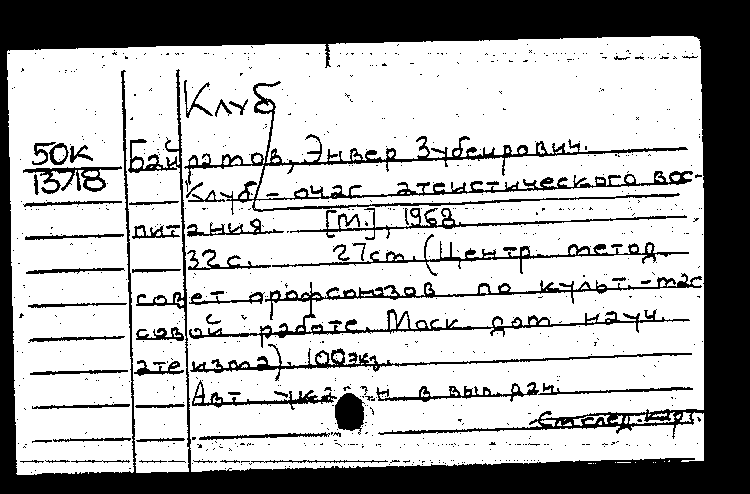 Клуб
50К
13718
Байрамов, Энвер Зубеирович.
Клуб - очаг атеистического вос-
питания. [М.], 1968.
32 с. 27 cm. (Центр. метод.
совет профсоюзов по культ.-мас
совой работе. Моск. дом науч.
атеизма). 100 экз.
Авт. указан в вып. дан.
См след. карт.